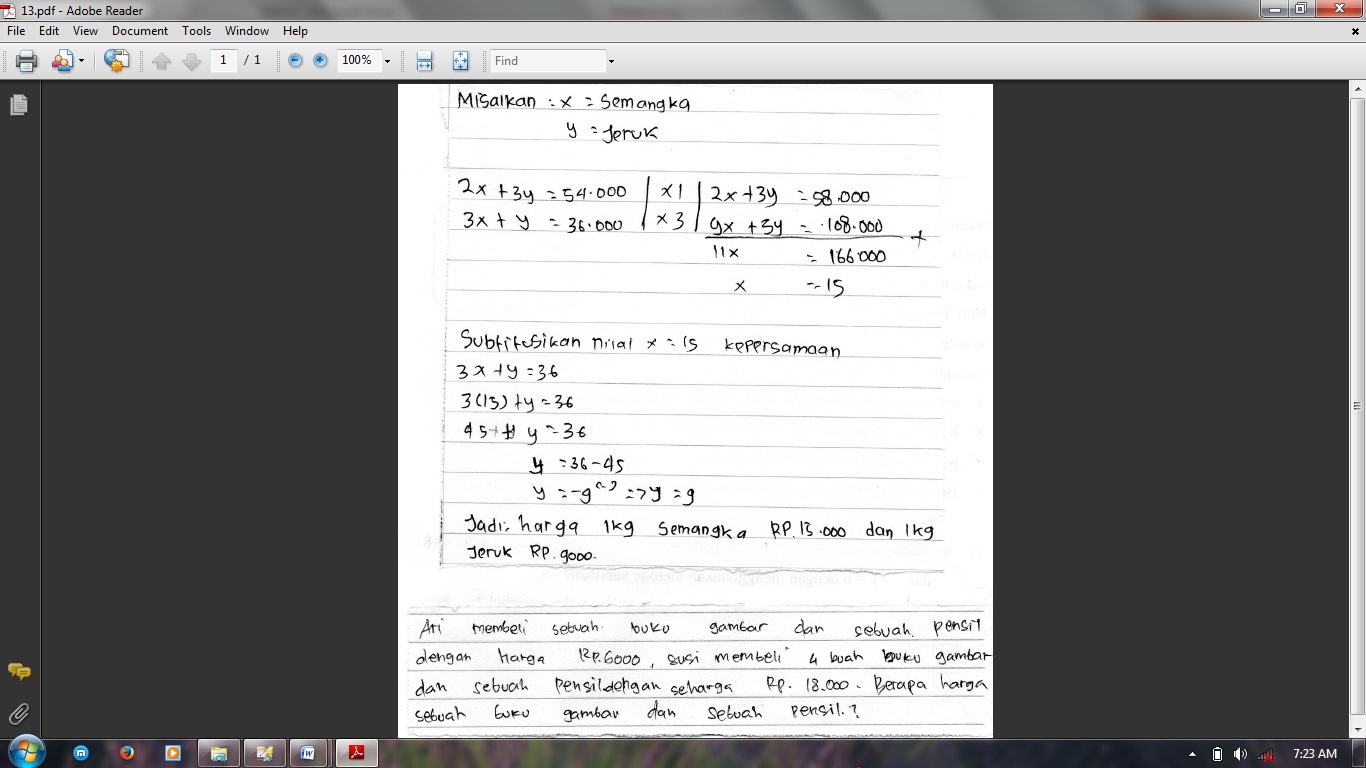 13.pdf - Adobe Reader
File Edit View Document Tools Window Help
1 / 1 100% Find
Misalkan : x = Semangka
y = Jeruk
2x + 3y = 54.000 | x1 | 2x + 3y = 58.000
3x + y = 36.000 | x 3 | 9x + 3y = 108.000 +
11x = 166.000
x = 15
Subtitusikan nilai x = 15 kepersamaan
3x + y = 36
3(13) + y = 36
45 + y = 36
y = 36 - 45
y = -9 (-) => y = 9
Jadi, harga 1kg semangka RP. 13.000 dan 1kg
Jeruk RP. 9000.
Ari membeli sebuah buku gambar dan sebuah pensil
dengan harga RP.6000, susi membeli 4 buah buku gambar
dan sebuah pensil dengan seharga RP. 18.000. Berapa harga
sebuah buku gambar dan sebuah pensil.?
7:23 AM